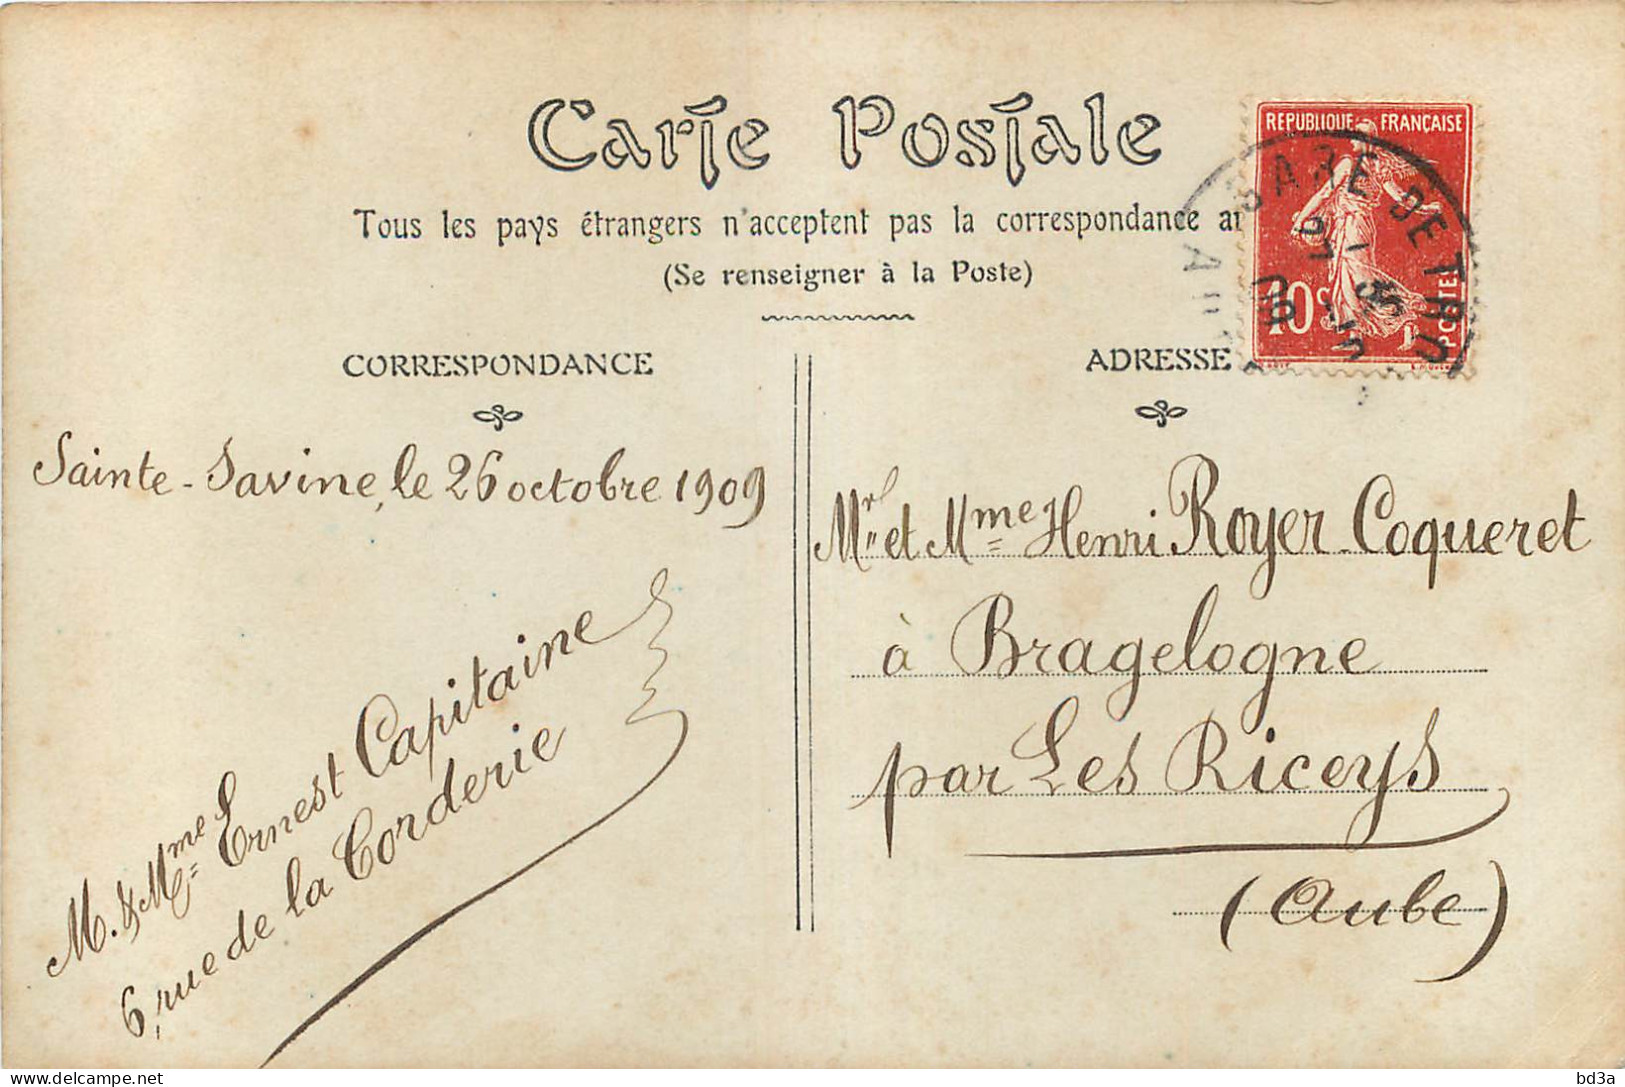 Carte Postale
Tous les pays étrangers n'acceptent pas la correspondance au
(Se renseigner à la Poste)
REPUBLIQUE FRANÇAISE
10c
POSTES
GARE DE TRO
CORRESPONDANCE
ADRESSE
Sainte-Savine, le 26 octobre 1909
M. & Mme Ernest Capitaine
6, rue de la Corderie
Mr et Mme Henri Royer-Coqueret
à Bragelogne
par Les Riceys
(Aube)
bd3a